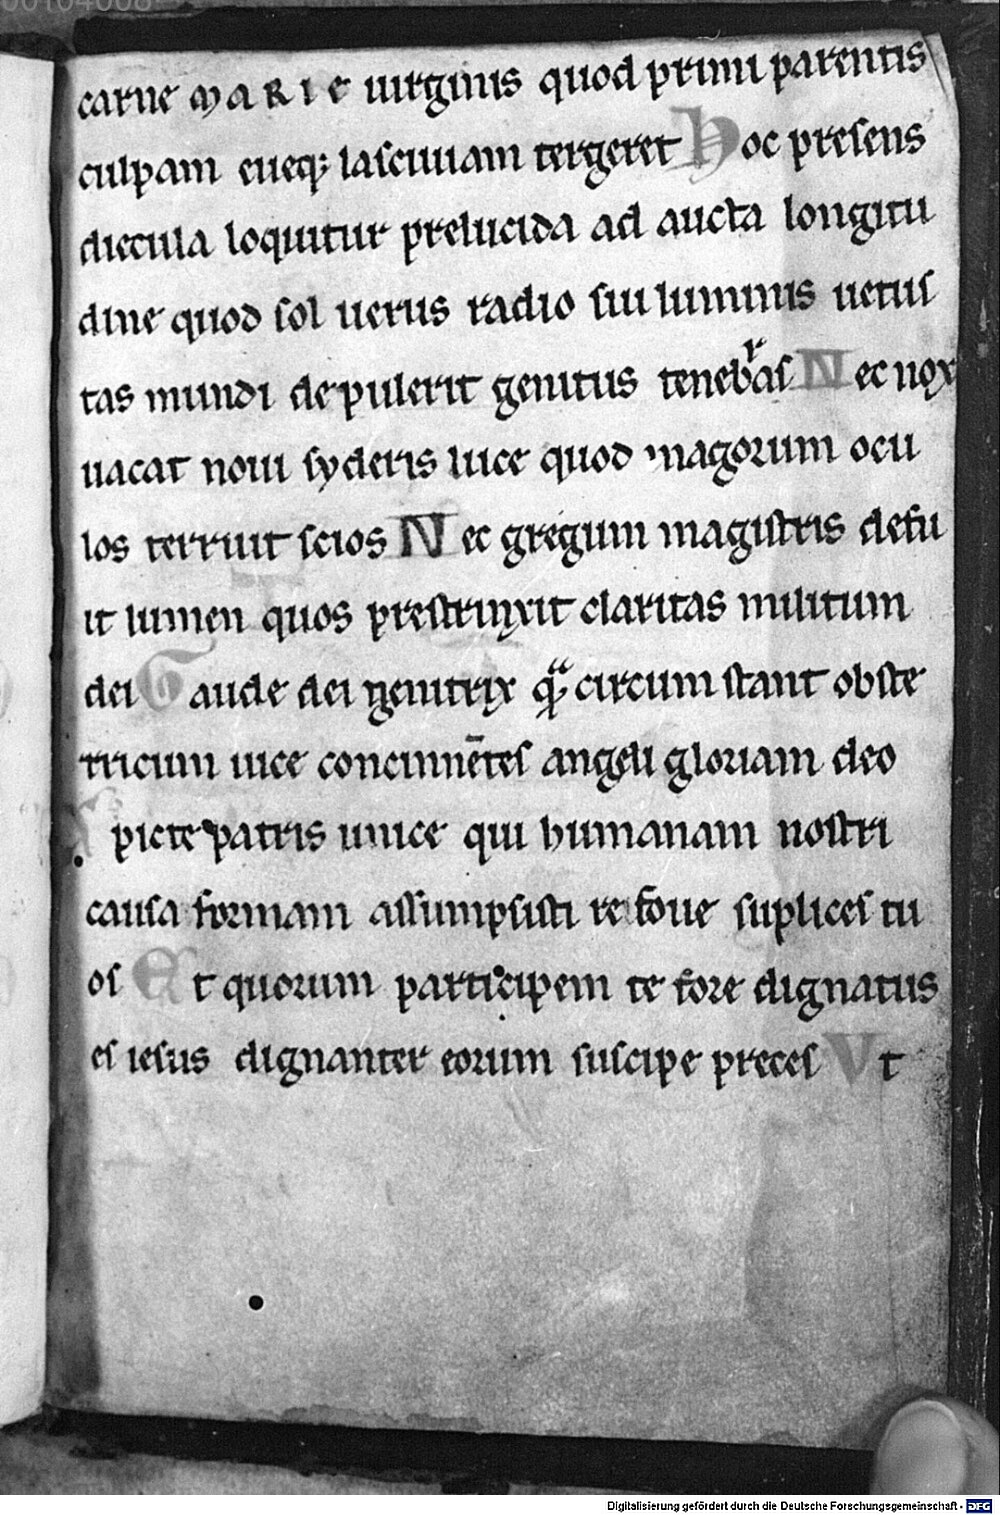 carne MARIE uirginis quod primi parentis
culpam eueq; lasciuiam tergeret Hoc presens
diecula loquitur prelucida ad aucta longitu
dine quod sol uerus radio sui luminis uetus
tas mundi depulerit genitus tenebras Nec nox
uacat noui syderis luce quod magorum ocu
los terruit scios Nec gregum magistris defu
it lumen quos prestrinxit claritas militum
dei Gaude dei genitrix quā circum stant obste
tricum uice concinnētes angeli gloriam deo
picte patris unice qui humanam nostri
causa formam assumpsisti re foue suplices tu
os Et quorum participem te fore dignatus
es iesus dignanter eorum suscipe preces Vt
Digitalisierung gefördert durch die Deutsche Forschungsgemeinschaft - DFG